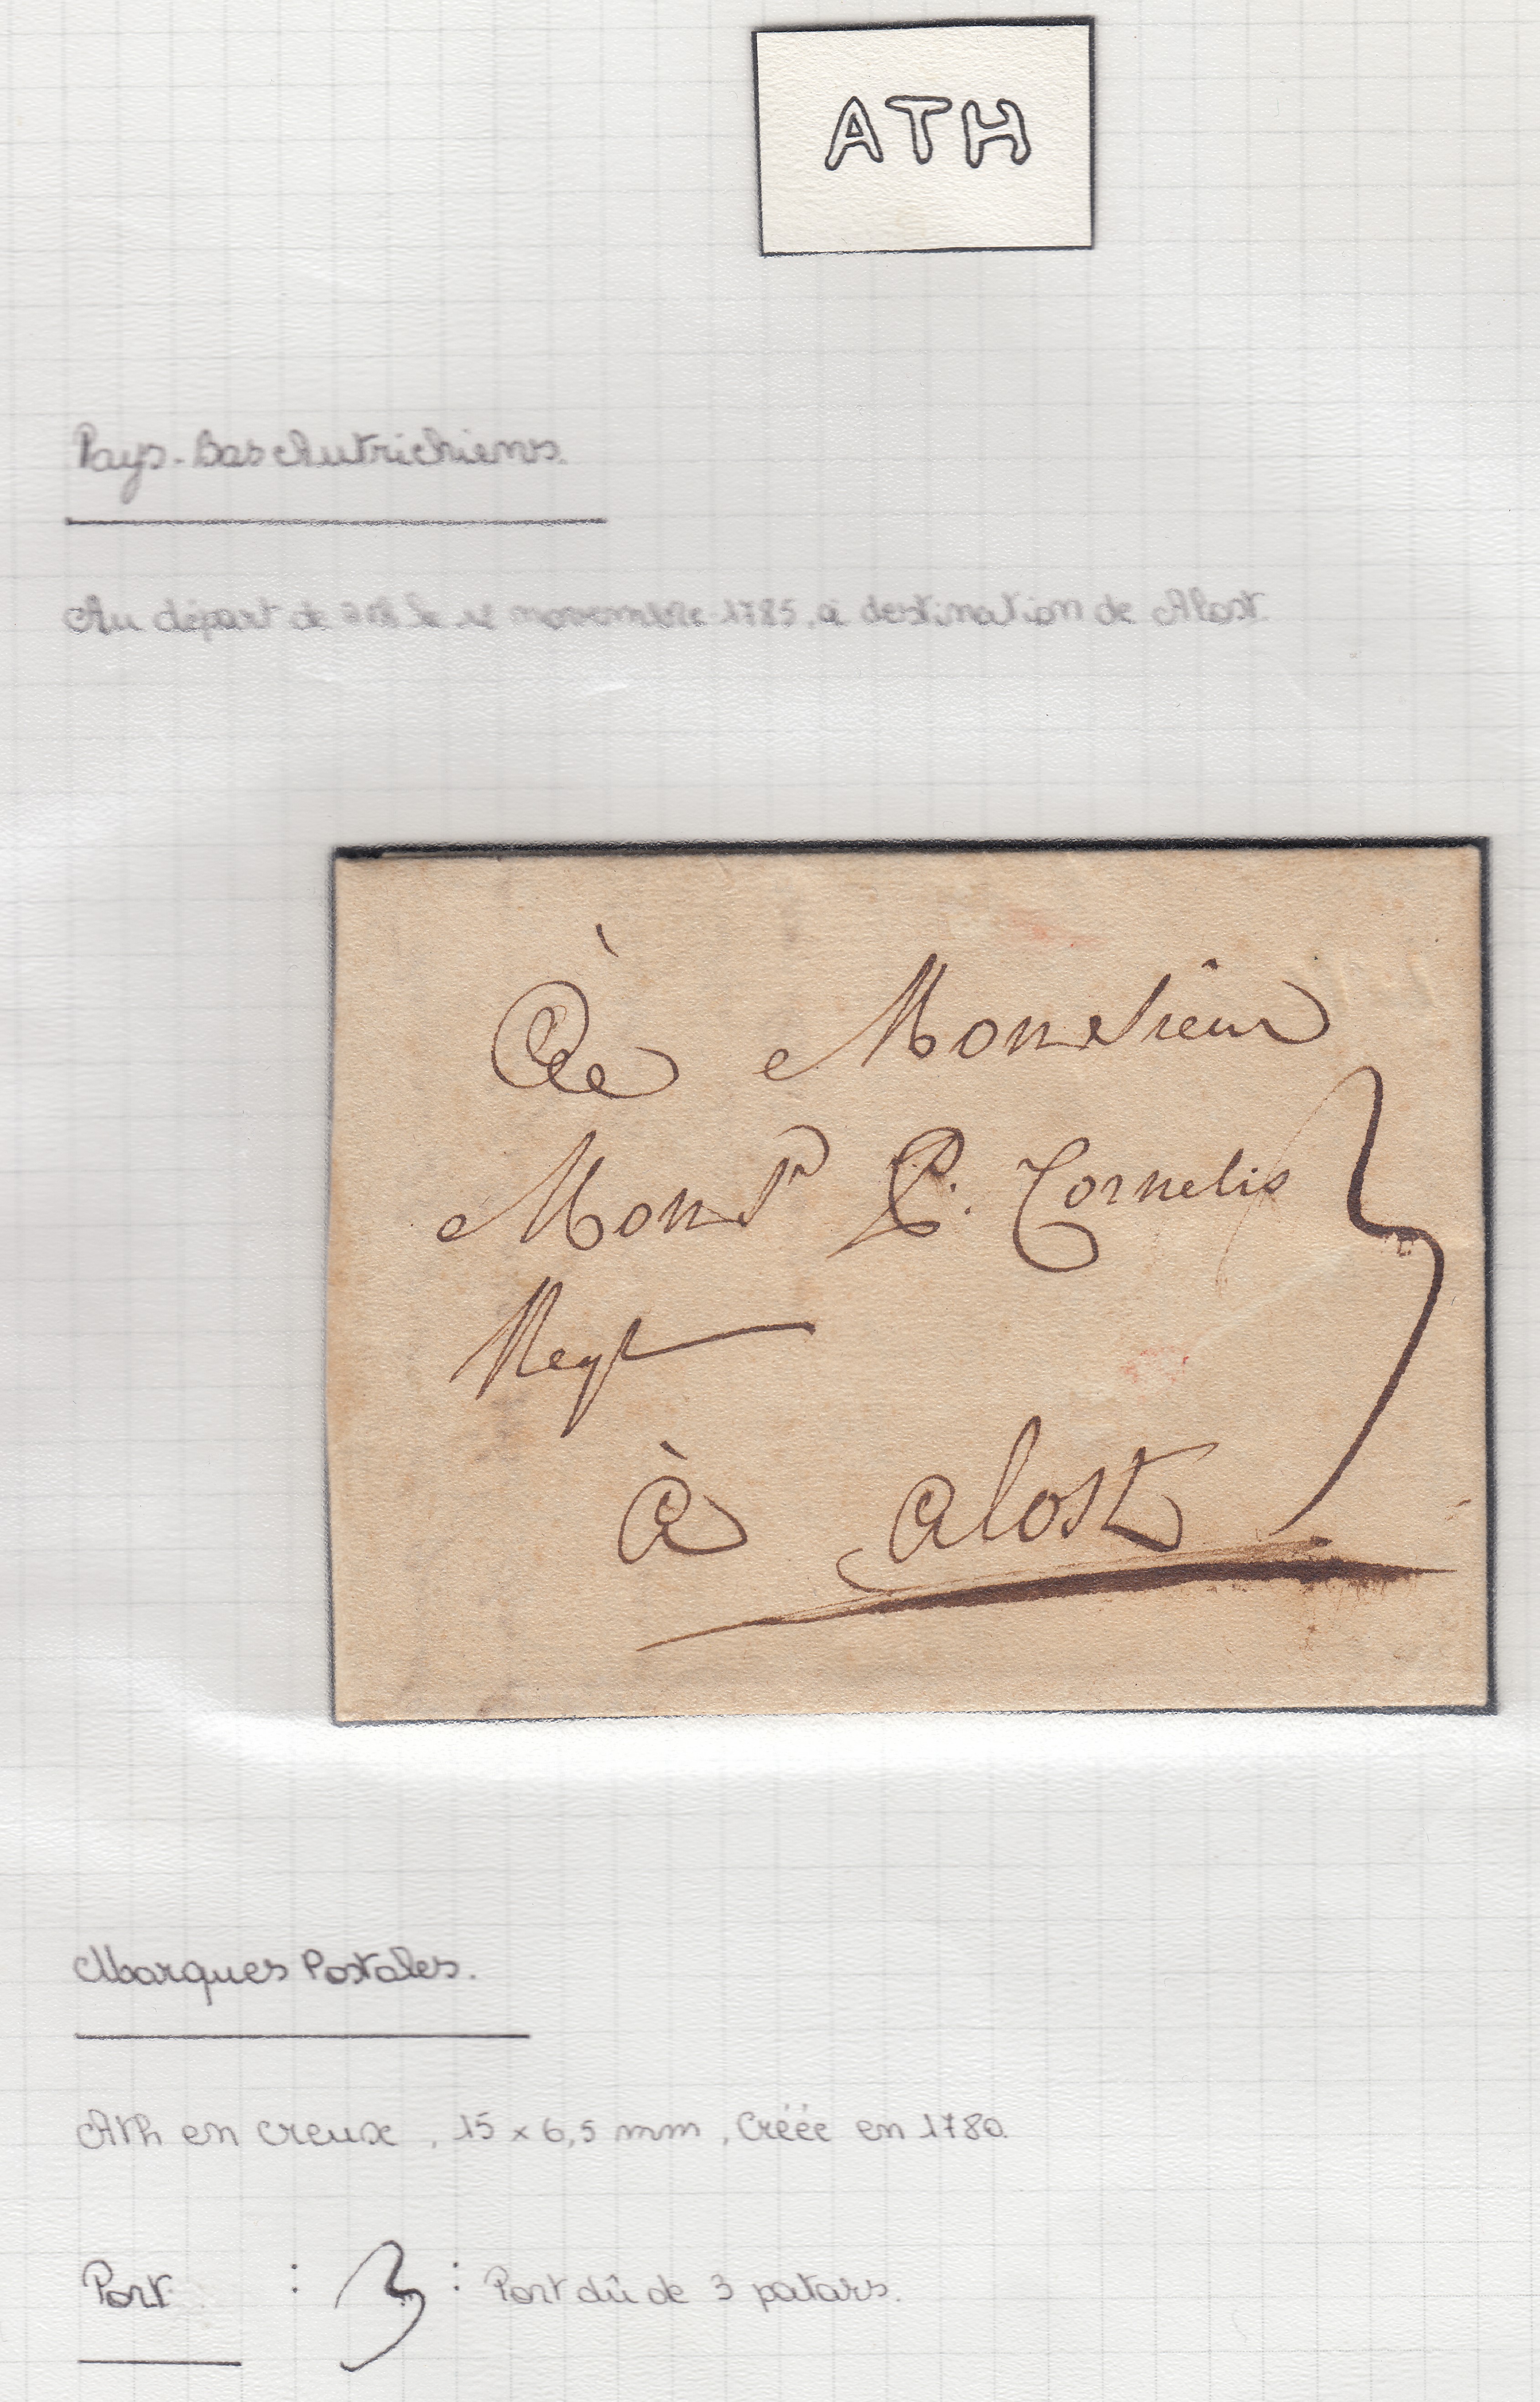 ATH
Pays-Bas Autrichiens.
Au départ de Ath le novembre 1785, à destination de Alost.
À Monsieur
Mons.r P. Cornelis
Negt
à alost
3
Marques Postales.
Ath en creux, 15 x 6,5 mm, Créée en 1780.
Port : 3 : Port dû de 3 patars.